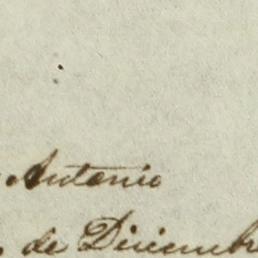 Antonio
de Diciembre